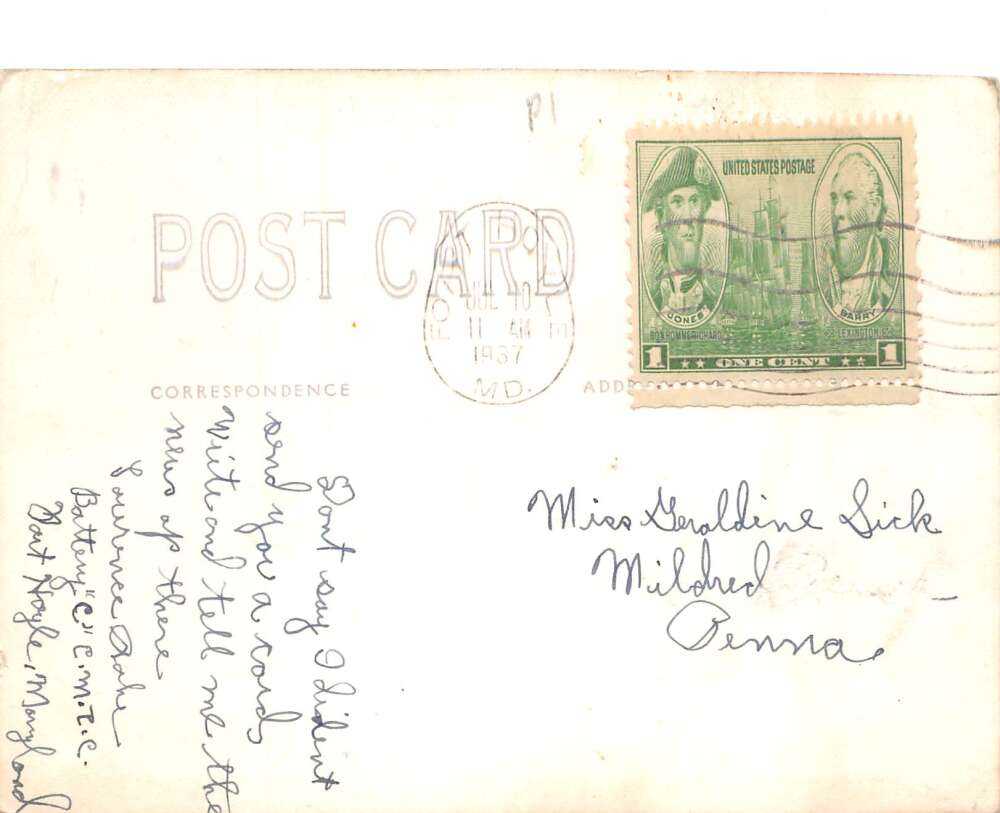 P1
POST CARD
UNITED STATES POSTAGE
JONES
BARRY
BONHOMME RICHARD
LEXINGTON
1 ONE CENT 1
FORT HOYLE
JUL 10
11 AM
1937
MD.
CORRESPONDENCE
ADD
Dont say I dident
send you a card
Write and tell me the
news up there
Lawrence
Battery "C" C.M.T.C.
Fort Hoyle, Maryland
Miss Geraldine Sick
Mildred
Penna.